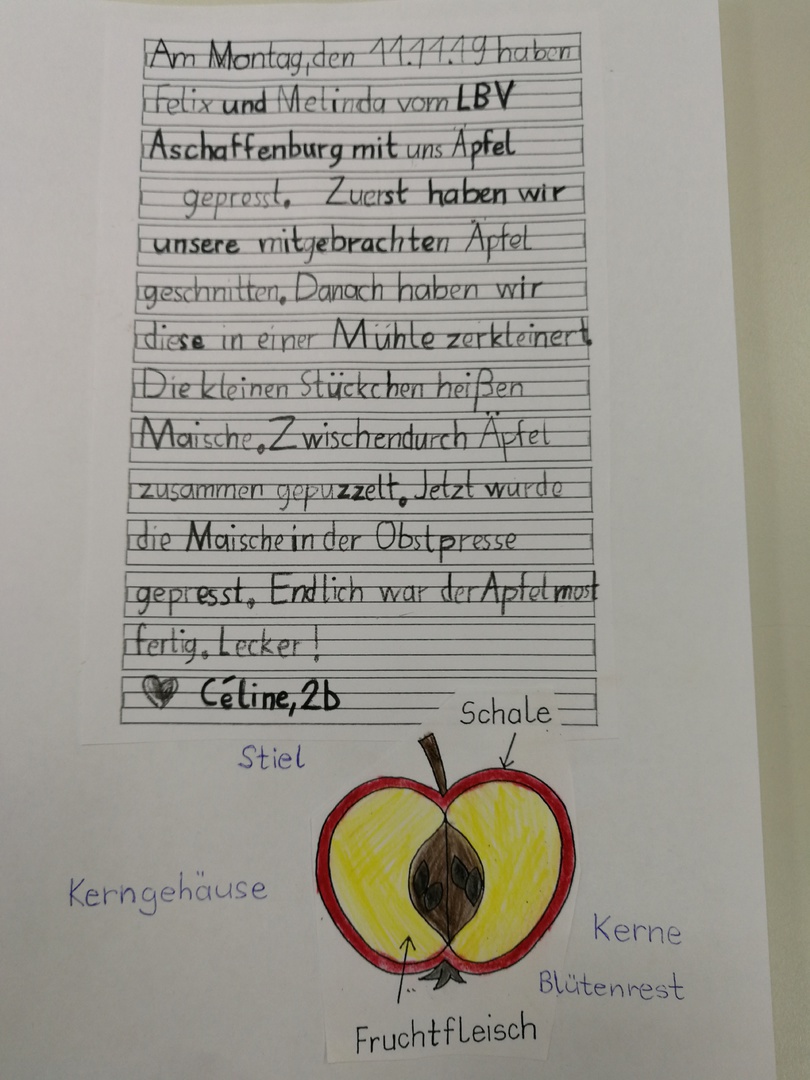 Am Montag, den 11.11.19 haben
Felix und Melinda vom LBV
Aschaffenburg mit uns Äpfel
gepresst. Zuerst haben wir
unsere mitgebrachten Äpfel
geschnitten. Danach haben wir
diese in einer Mühle zerkleinert
Die kleinen Stückchen heißen
Maische. Zwischendurch Äpfel
zusammen gepuzzelt. Jetzt wurde
die Maische in der Obstpresse
gepresst. Endlich war der Apfelmost
fertig. Lecker!
Céline, 2b
Schale
Stiel
Kerngehäuse
Kerne
Blütenrest
Fruchtfleisch